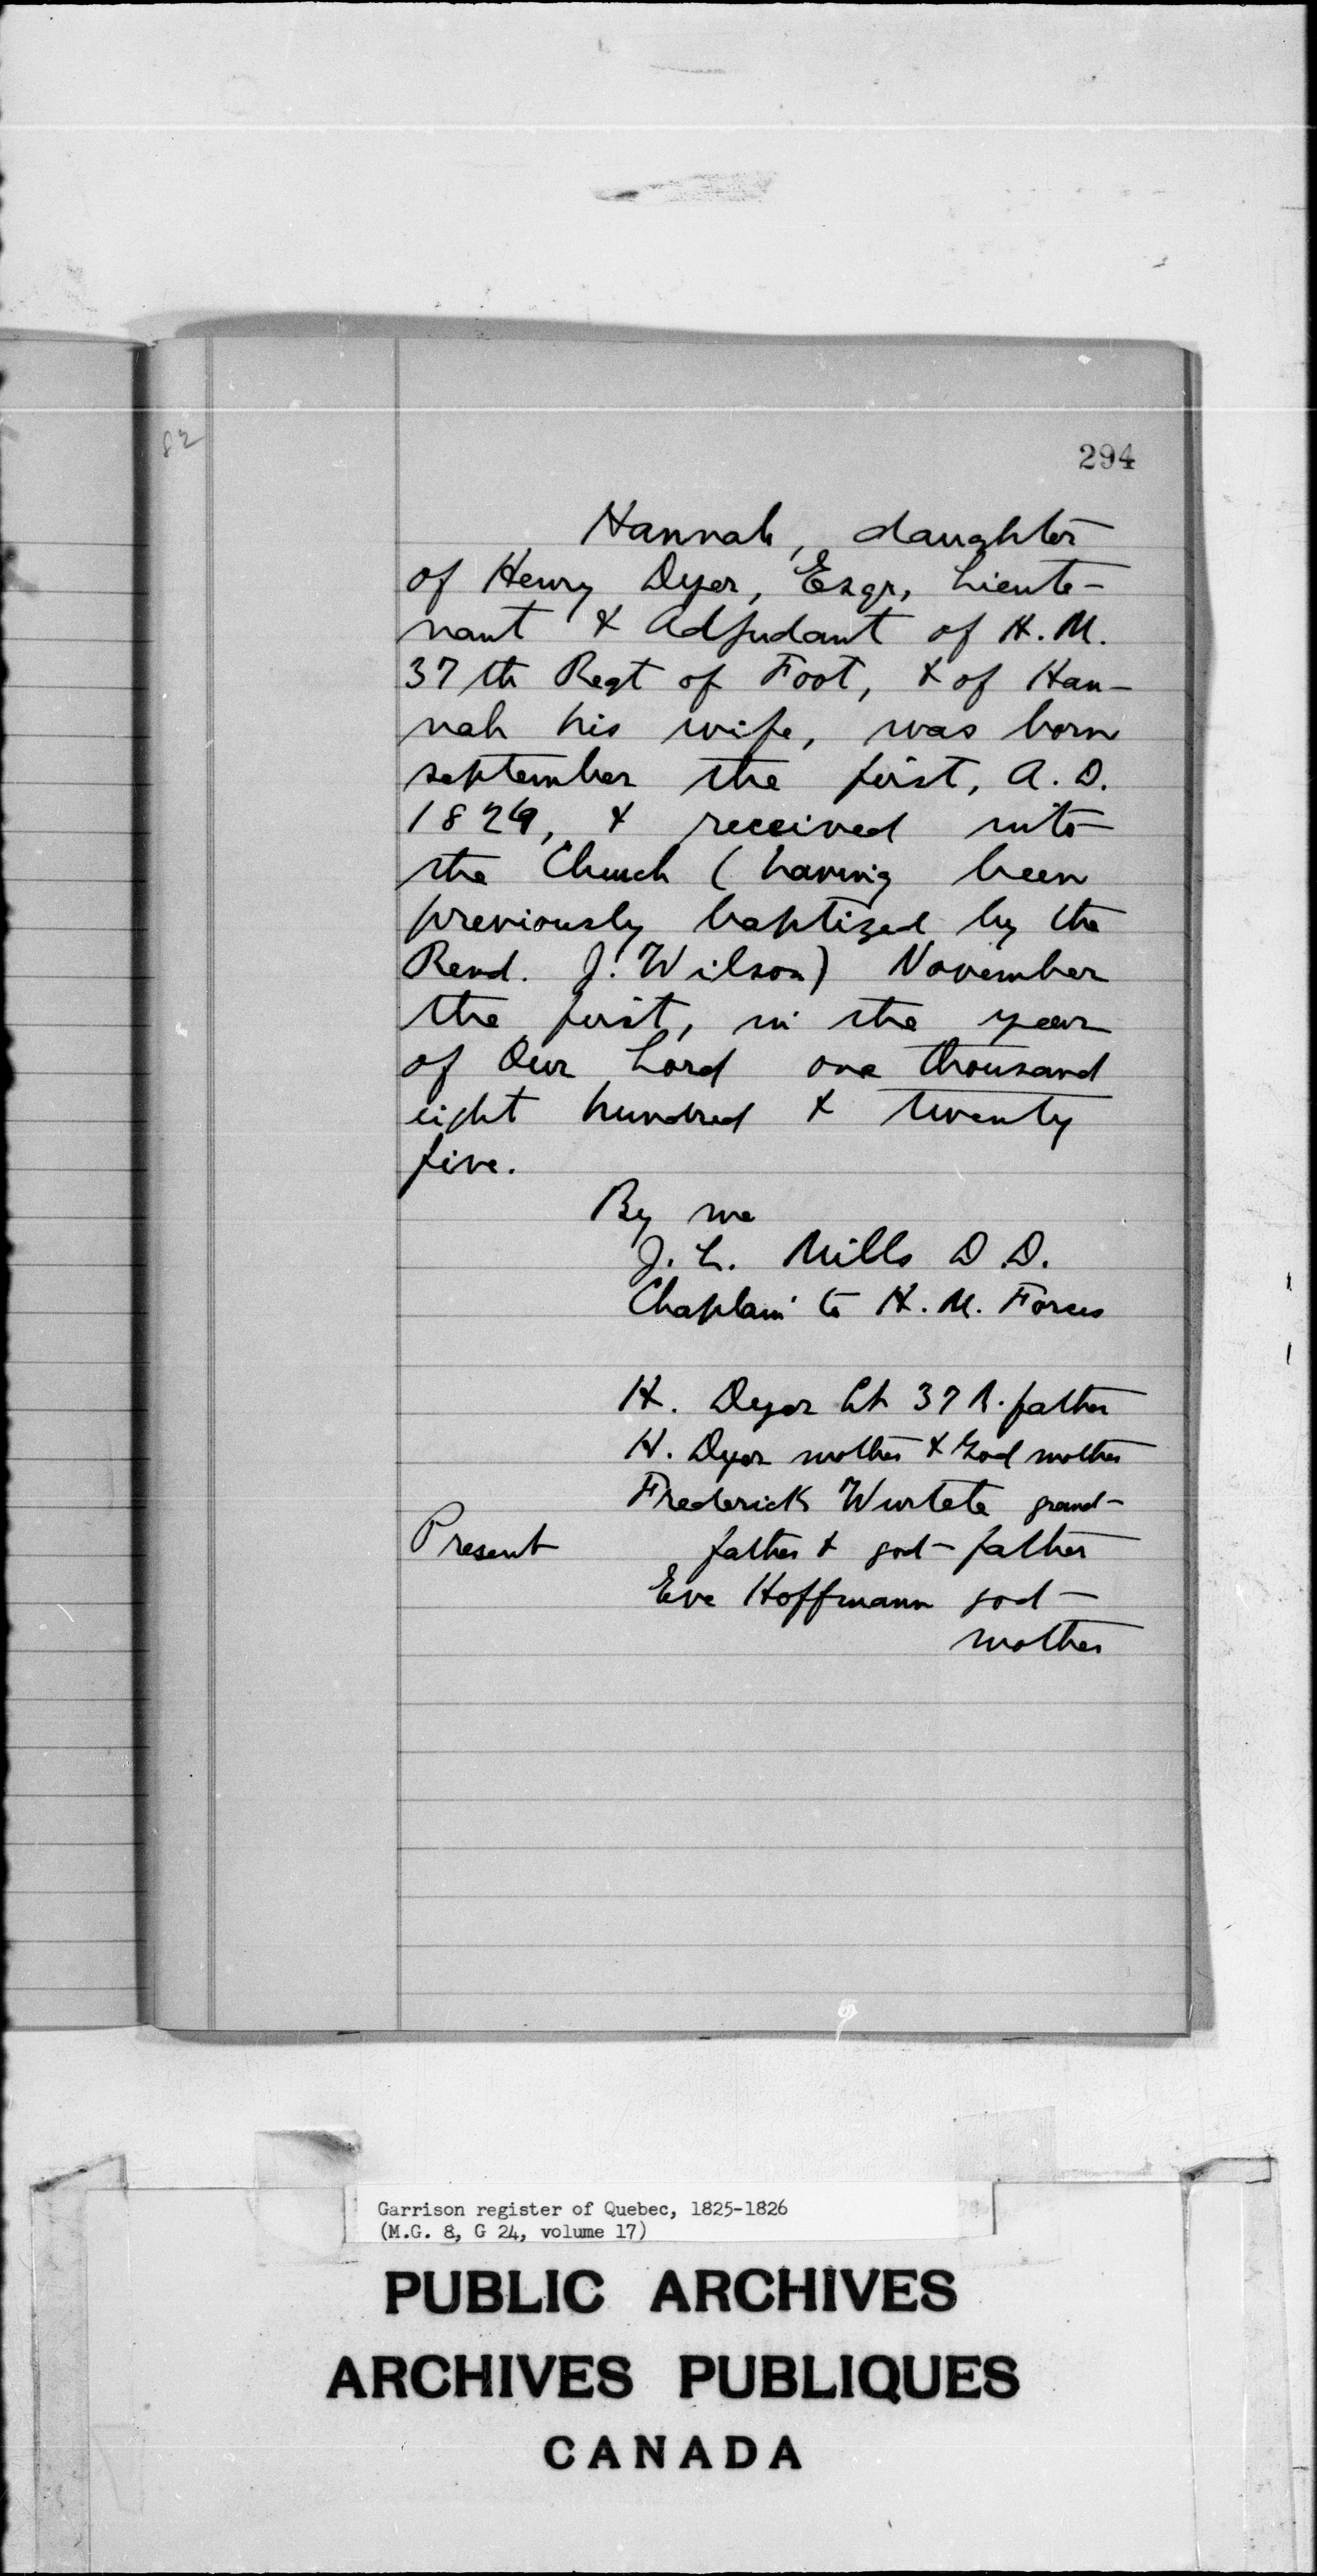 82
294
Hannah, daughter
of Henry Dyer, Esqr, Lieute-
nant & Adjudant of H.M.
37th Regt of Foot, & of Han-
nah his wife, was born
september the first, A.D.
182, & received into
the Church (having been
previously baptized by the
Revd. J. Wilson) November
the first, in the year
of Our Lord one thousand
eight hundred & twenty
five.
By me
J. L. Mills D.D.
Chaplain to H.M. Forces
H. Dyer Lt 37 R. father
H. Dyer mother & God mother
Frederick Wurtete grand-
Present father & god-father
Eve Hoffmann god-
mother
Garrison register of Quebec, 1825-1826
(M.G. 8, G 24, volume 17)
PUBLIC ARCHIVES
ARCHIVES PUBLIQUES
CANADA